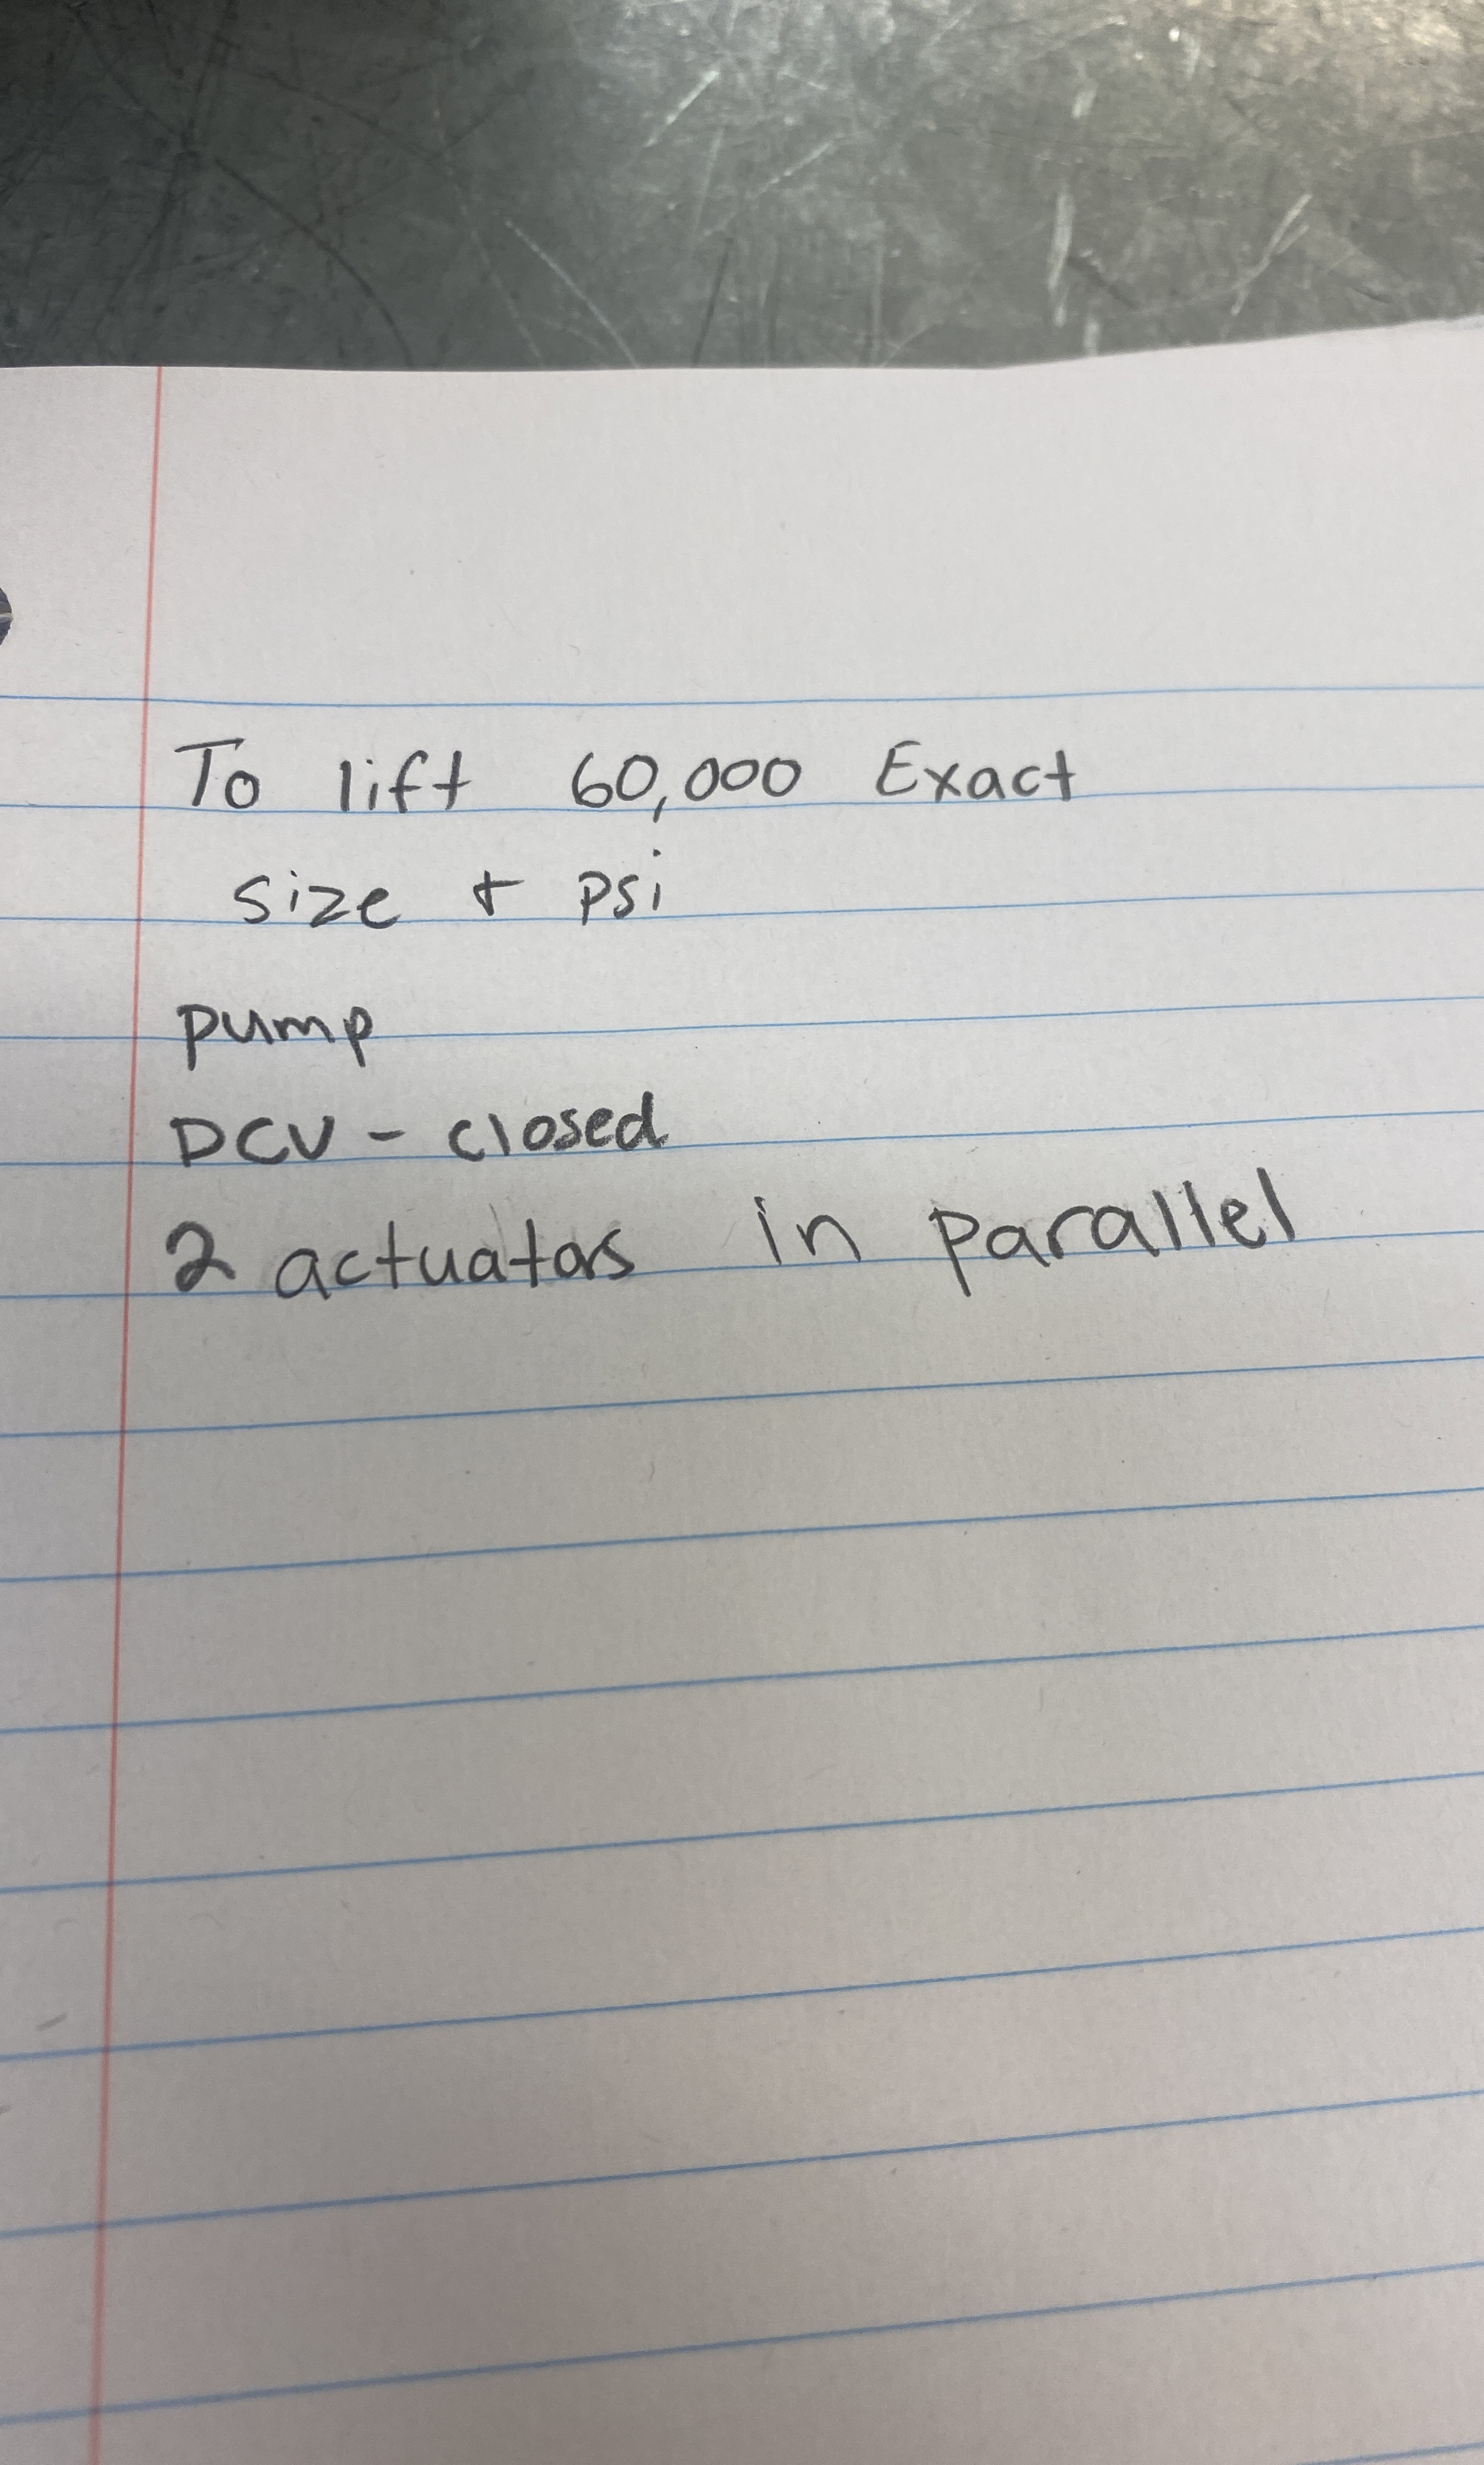 To lift 60,000 Exact
size + psi
pump
DCV - closed
2 actuators in parallel